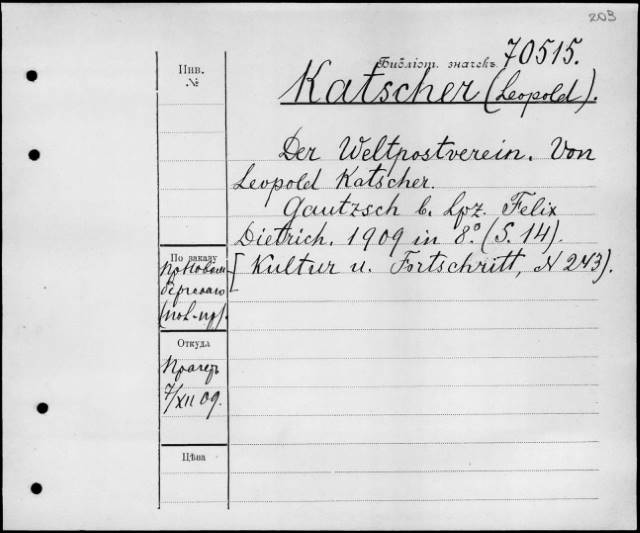 203
Инв.
№
Библіот. значекъ 70515.
Katscher (Leopold).
Der Weltpostverein. Von
Leopold Katscher.
Gautzsch b. Lpz. Felix
Dietrich. 1909 in 8° (S. 14).
[Kultur u. Fortschritt, N 243).
По заказу
Откуда
7/XII 09.
Цѣна